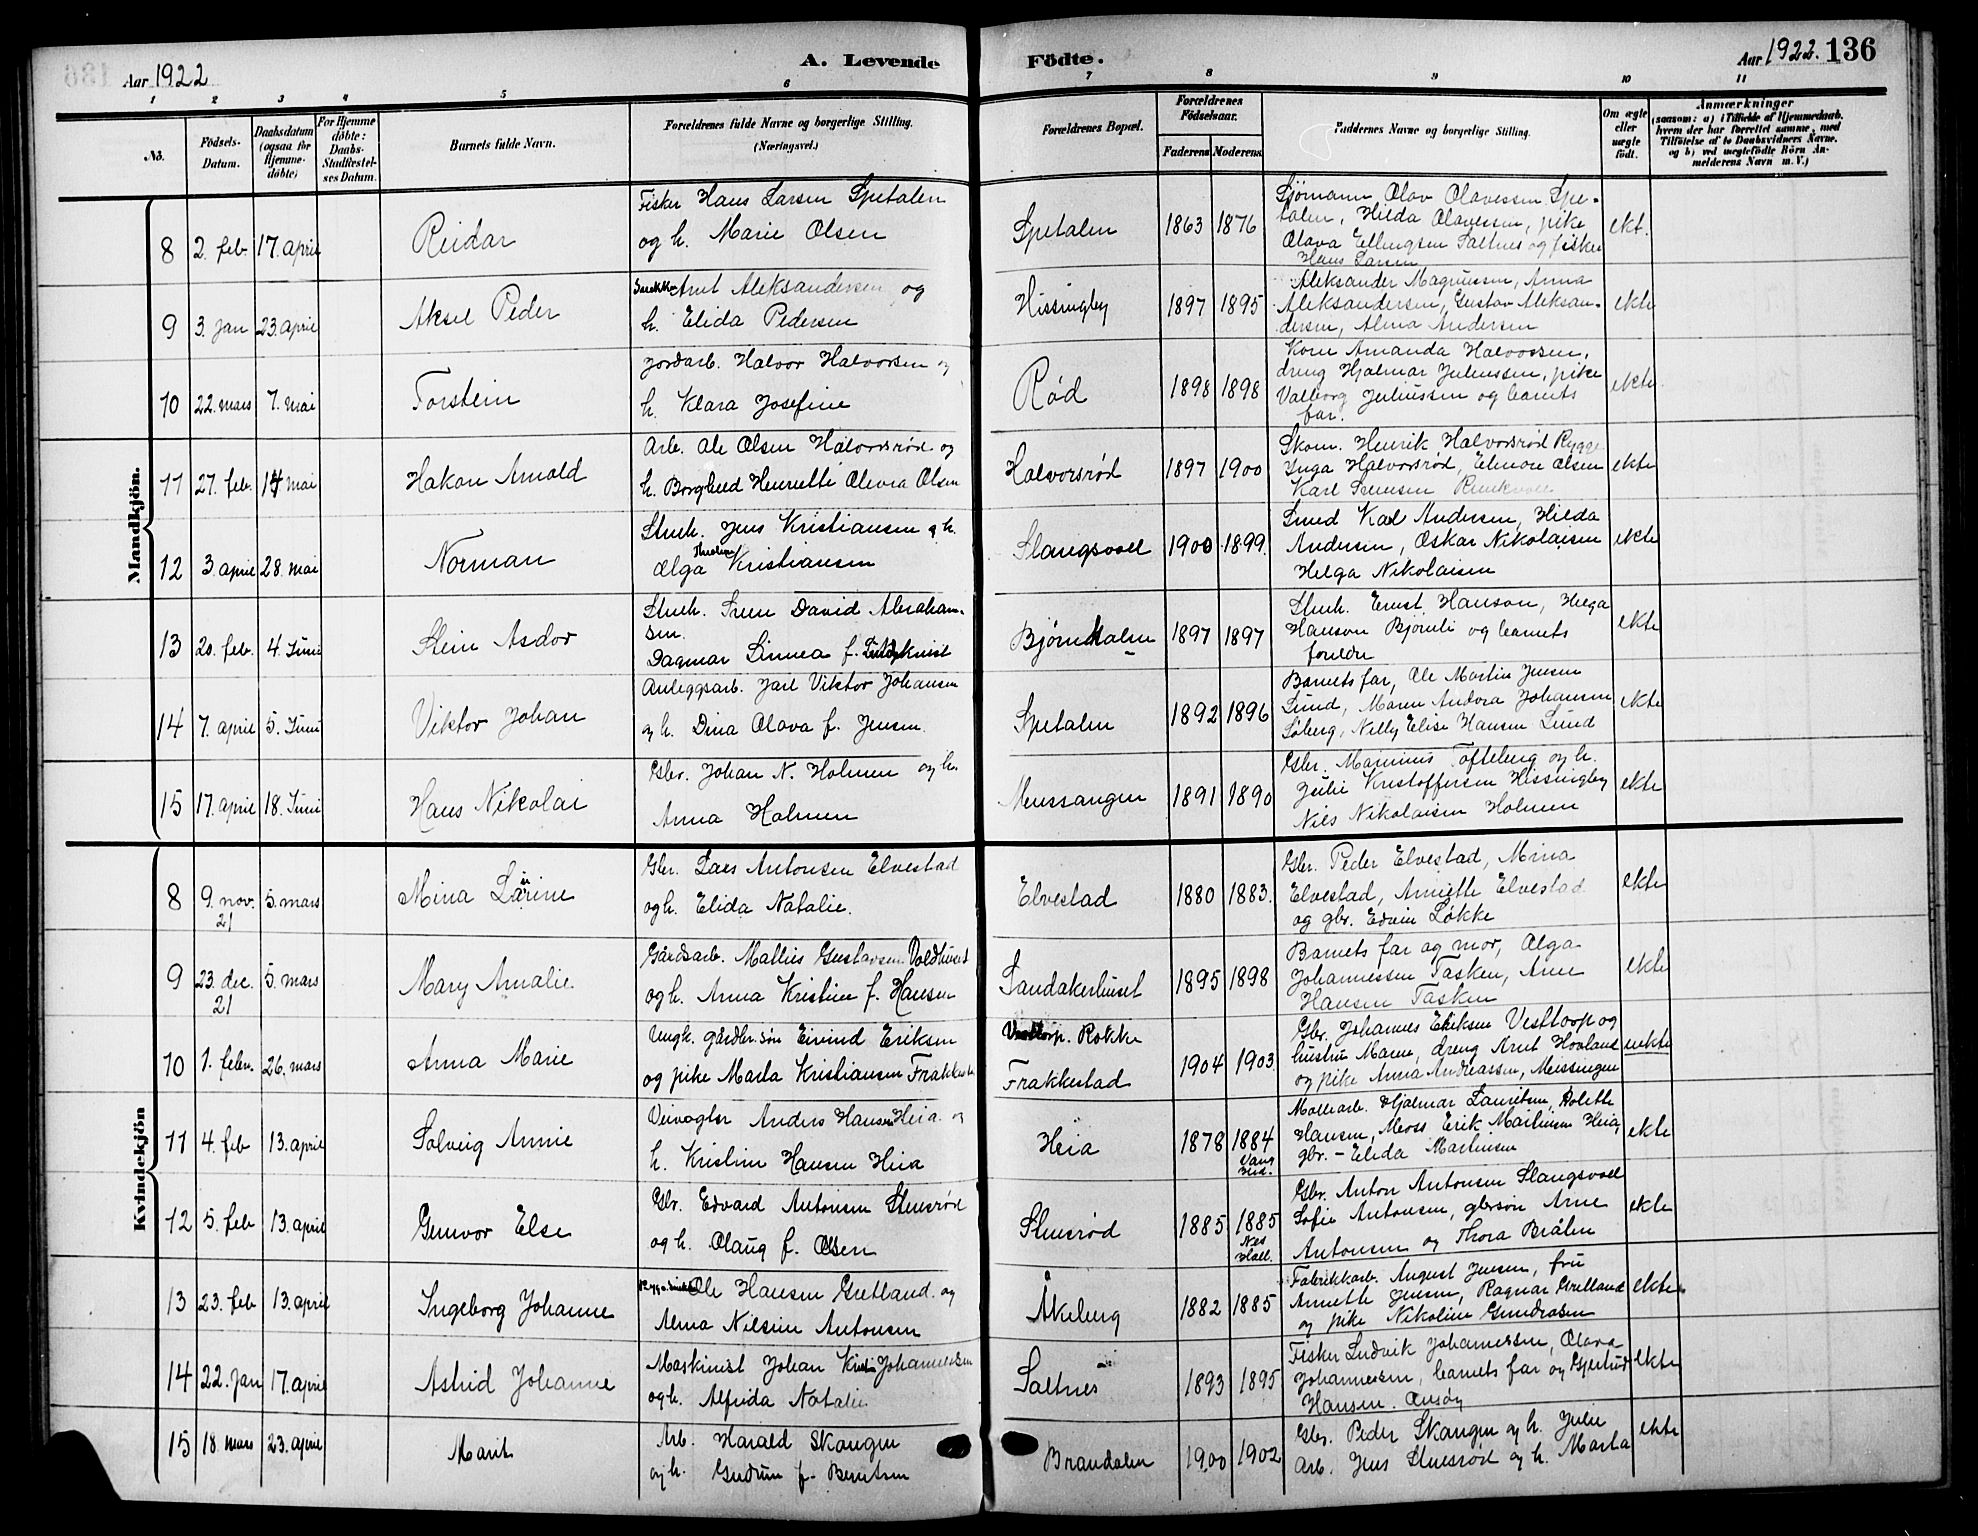 Aar 1922
A. Levende
Födte.
Aar 1922. 136
1 2 3 4 5 6 7 8 9 10 11
No.
Födsels-Datum.
Daabsdatum (ogsaa for Hjemme-döbte)
For Hjemme döbte: Daabs-Stadfæstel-ses Datum.
Barnets fulde Navn.
Forældrenes fulde Navne og borgerlige Stilling.
(Næringsvei.)
Forældrenes Bopæl.
Forældrenes Födselsaar.
Faderens Moderens
Faddernes Navne og borgerlige Stilling.
Om ægte eller uægte födt.
Anmærkninger
(saasom: a) i Tilfælde af Hjemmedaab,
hvem der har forrettet samme, med
Tilföielse af to Daabsvidners Navne.
og b) ved uægtefödte Börn An-
melderens Navn m. V.)
Mandkjön.
8 2. feb. 17. april Reidar
Fisker Hans Larsen Spetalen
og h. Marie Olsen
Spetalen 1863 1876
Sjömann Olav Olavessen Spe-
talen, Hilda Olavessen, pike
Olava Ellingsen Saltnes og fisker
Hans Larsen
ekt.
9 3. jan 23. april Aksel Peder
Arnt Aleksandersen og
h. Elida Pedersen
Hissingby 1897 1895
Aleksander Magnussen, Anna
Aleksandersen, Gustav Aleksan-
dersen, Alma Andersen
ekte
10 22. mars 7. mai Torstein
Jordarb. Halvor Halvorsen og
h. Klara Josefine
Rød 1898 1898
Kone Amanda Halvorsen,
dreng Hjalmar Juliussen, pike
Valborg Juliussen og barnets
far.
ekte
11 27. feb. 14 mai Hakon Arnold
Arb. Ole Olsen Halvorsrød og
h. Borghild Henriette Olevia Olsen
Halvorsrød 1897 1900
Skom. Henrik Halvorsrød Rygge
Inga Halvorsrød, Elinore Olsen
Karl
ekte
12 3. april 28. mai Norman
Stenh. Jens Kristiansen og h.
Olga Kristiansen
Slangsvold 1900 1899.
Smed Karl Andersen, Hilda
Andersen, Oskar Nikolaisen
Helga Nikolaisen
ekte
13 20. feb. 4. Juni Stein Asdor
Stenh. Sven David Abraham-
sen.
Dagmar Linnea f.
Bjørnhalen 1897 1897
Stenh. Ernst Hanson, Helga
Hanson Bjørnli og barnets
foreldre
ekte
14 7. april 5. Juni Viktor Johan
Anleggsarb. Jarl Viktor Johansen
og h. Dina Olava f. Jensen.
Spetalen 1892 1896
Barnets far, Ole Martin Jensen
Lund, Maren Andora Johansen
Söberg, Nelly Elise Hansen Lund
ekte
15 17. april 18. Juni Hans Nikolai
Gbr. Johan N. Holmen og h.
Anna Holmen
Meussangen 1891 1890
Gbr. Marinius Tofteberg og h.
Julie Kristoffersen Hissingby
Nils Nikolaisen Holmen
ekte
Kvindekjön
8 9. nov. 21 5. mars Mina Larine
Gbr. Lars Antonsen Elvestad
og h. Elida Natalie.
Elvestad 1880 1883.
Gbr. Peder Elvestad, Mina
Elvestad, Annette Elvestad
og gbr. Edvin Løkke
ekte
9 23. dec. 21 5. mars Mary Amalie
Gårdsarb. Mathis Gustavsen
og h. Anna Kristine f. Hansen
Sandakerhuset 1895 1898
Barnets far og mor, Olga
Johannessen Tasken, Arne
Hansen Tasken
ekte
10 1. febr. 26. mars Anna Marie
Ungk. gårdbr. søn Eivind Eriksen
og pike Marta Kristiansen Frakkestad
Vesttorp. Rokke
Frakkestad 1904 1903
Gbr. Johannes Eriksen Vesttorp og
hustru Maren, dreng Arnt Hovland
og pike Anna Andreassen, Meissingen
uekte
11 4. feb 13. april Solveig Annie
Veivogter Anders Hansen Heia og
h. Kristine Hansen Heia
Heia 1878 1884
Vang
Hed.
Mollearb. Hjalmar Lauritsen, Bolette
Hansen, Moss Erik Martinsen Heia,
gbr. – Elida Martinsen
ekte
12 5. feb 13. april Gunvor Else
Gbr. Edvard Antonsen Stensrød
og h. Olaug f. Olsen
Stensrød 1885 1885
Nes
Hall.
Gbr. Anton Antonsen Slangsvold
Sofie Antonsen, gbrsøn Arne
Antonsen og Thora Bråten
ekte
13 23. feb 13. april Ingeborg Johanne
Ole Hansen Gretland og
Alma Nilsine Antonsen
Åkeberg 1882 1885
Fabrikkarb. August Jensen, fru
Annette Jensen, Ragnar Gretland
og pike Nikoline Gundersen
ekte
14 22. jan 17. april Astrid Johanne
Maskinist Johan Johannessen
og h. Alfrida Natalie.
Saltnes 1893 1895
Fisker Ludvik Johannessen, Olava
Johannessen, barnets far og Gjertrud
Hansen. Onsøy
ekte
15 18. mars 23. april Marit
Arb. Harald Skaugen
og h. Gudrun f. Berntsen
Brandalen 1900 1902
Gbr. Peder Skaugen og h. Julie
Arb. Jens Stensrød og h. Marta
ekte